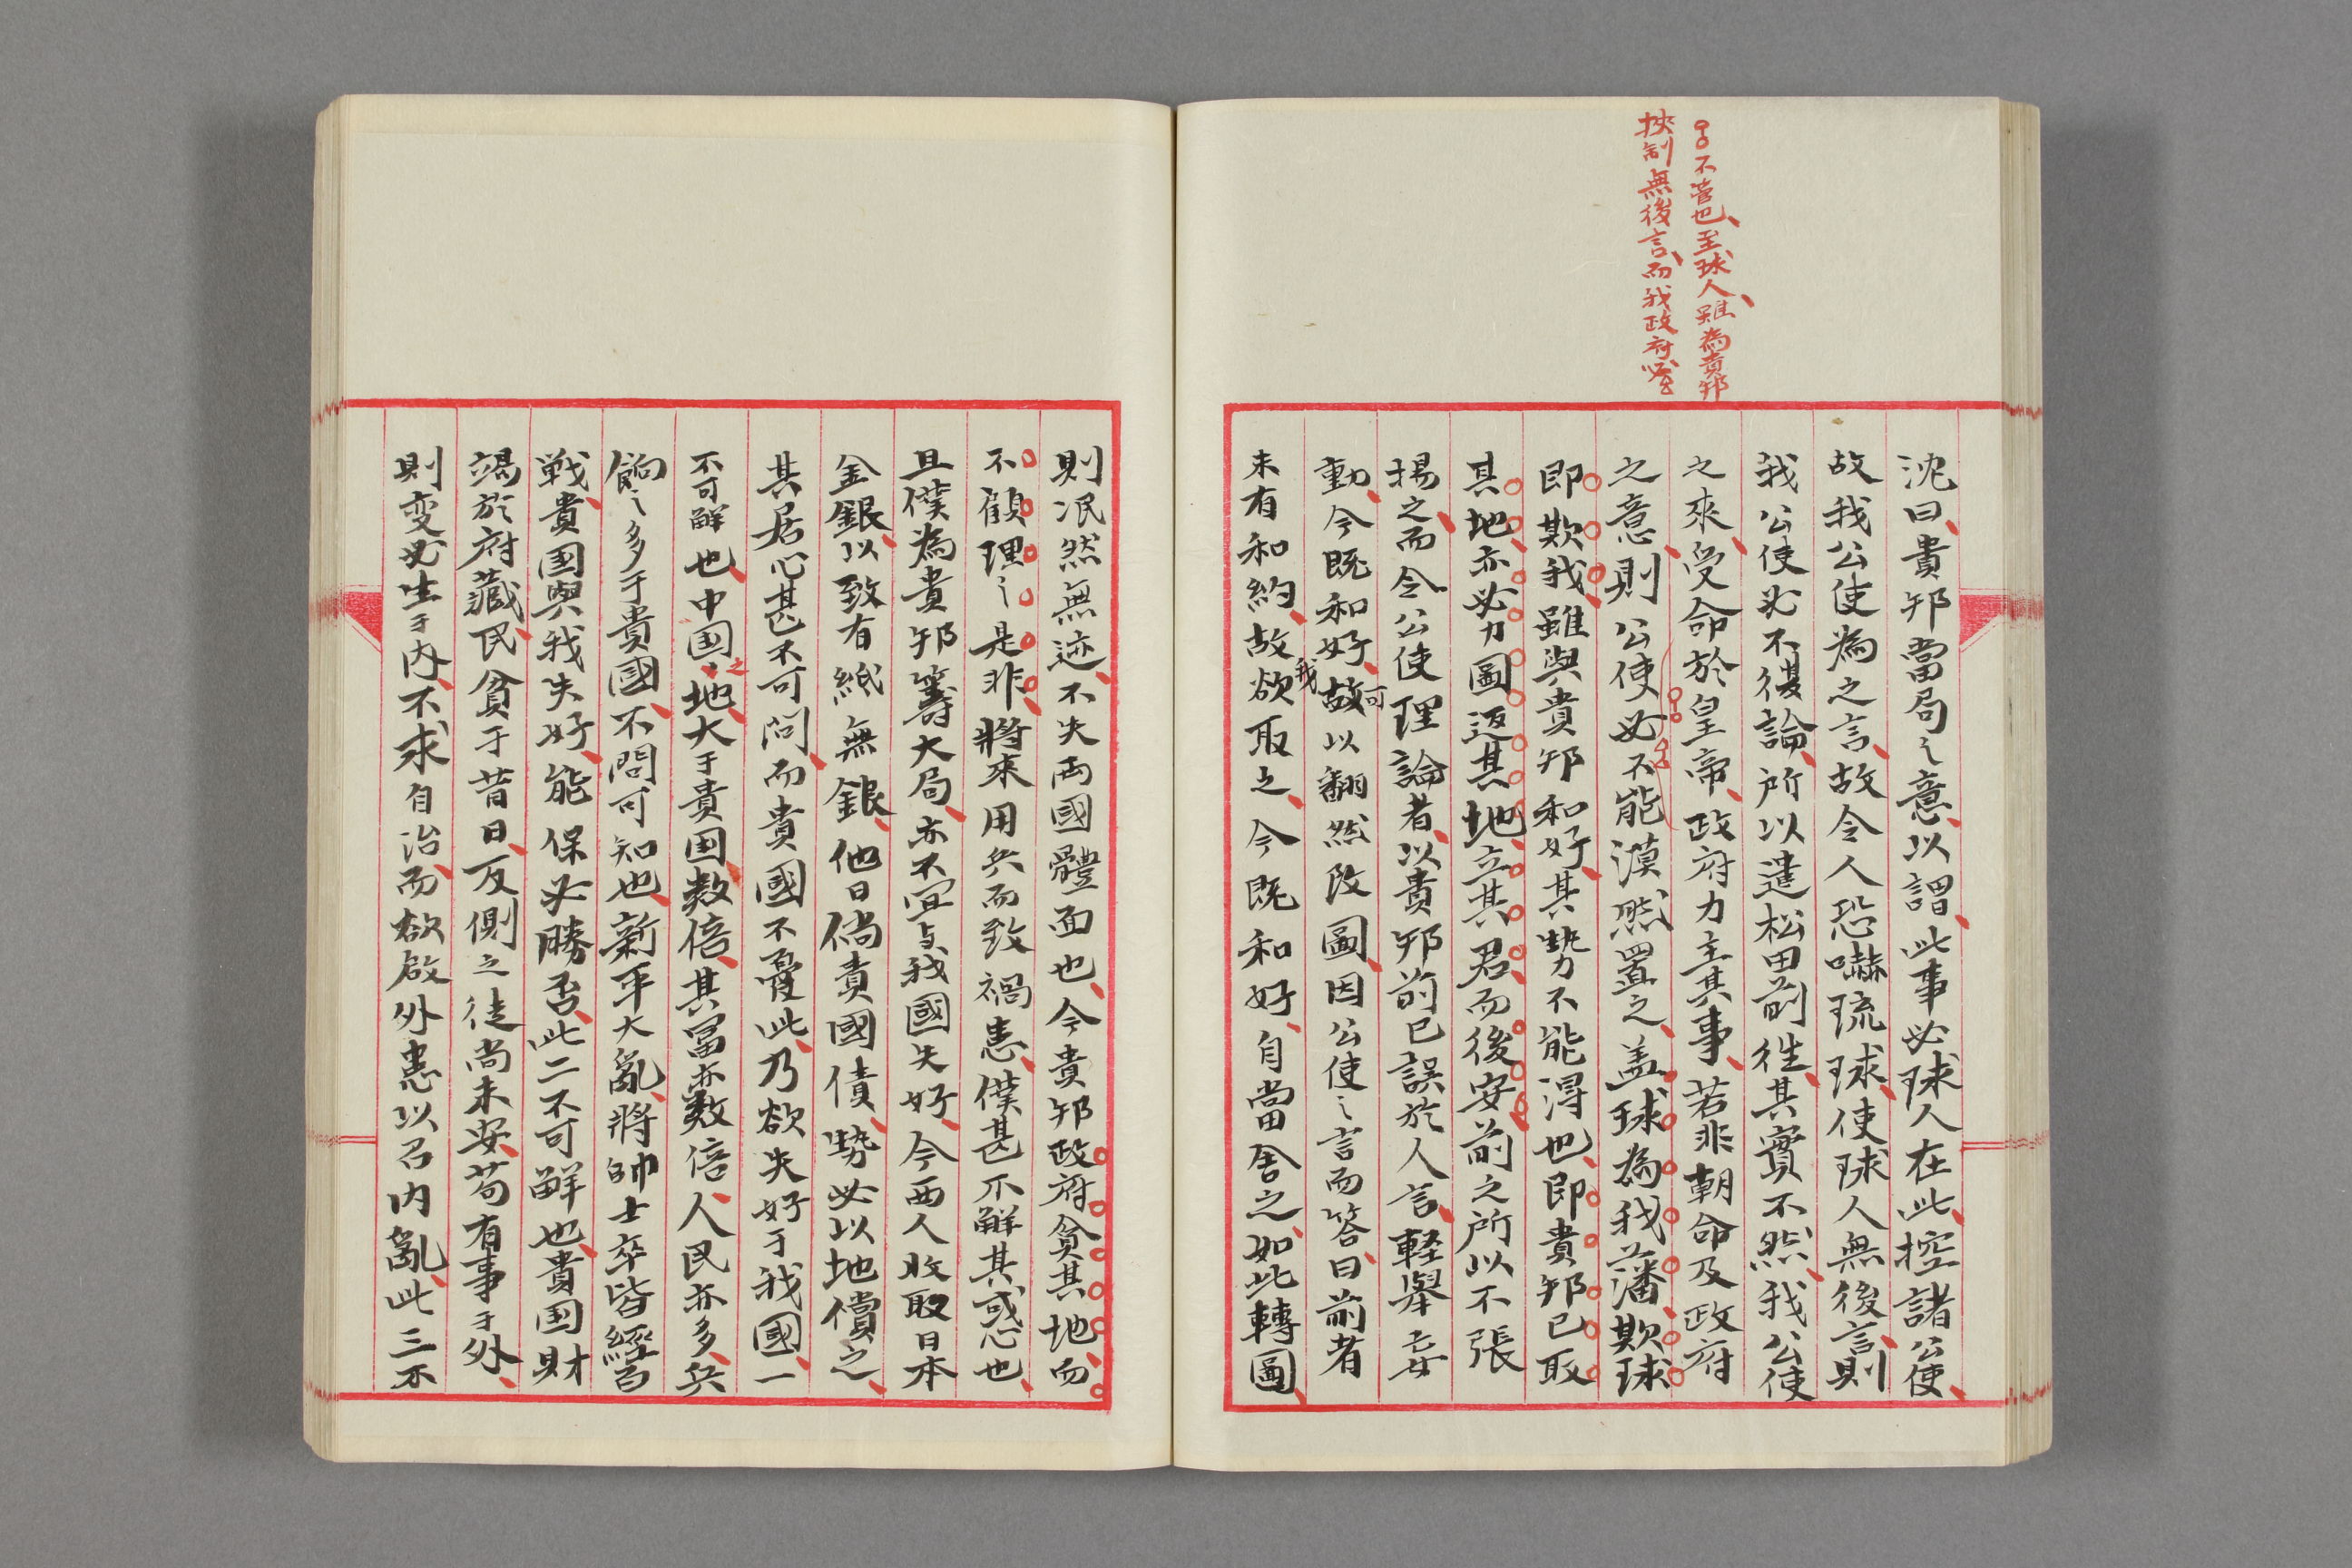 不管也、至球人、雖為貴邦
挾制無後言、而我政府必至
沈曰、貴邦當局之意、以謂、此事必球人在此、控諸公使、
故我公使為之言、故令人恐嚇琉球、使球人無後言、則
我公使必不復論、所以遣松田前往、其實不然、我公使
之來、受命於皇帝、政府力主其事、若非朝命及政府
之意、則公使必不能漠然置之、盖球為我藩、欺球
即欺我、雖與貴邦和好、其勢不能淂也、即貴邦已取
其地、亦必力圖返其地、立其君、而後安、前之所以不張
揚之、而令公使理論者、以貴邦前已誤於人言、輕舉妄
動、今既和好、故可以翻然改圖、因公使之言而答曰、前者
未有和約、故我欲取之、今既和好、自當舍之、如此轉圖、
則泯然無迹、不失兩國體面也、今貴邦政府貪其地、而
不顧理之是非、將來用兵而致禍患、僕甚不解其惑也、
且僕為貴邦籌大局、亦不宜與我國失好、今西人收取日本
金銀、以致有紙無銀、他日倘責國債、勢必以地償之、
其居心甚不可問、而貴國不憂此、乃欲失好于我國、一
不可解也、中国之地、大于貴国数倍、其富亦数倍、人民亦多、兵
餉之多于貴國、不問可知也、新平大亂、將帥士卒皆經百
戦、貴國與我失好、能保必勝否、此二不可解也、貴国財
竭於府藏、民貧于昔日、反側之徒尚未安、苟有事于外、
則変必生于内、不求自治、而欲啟外患以召内亂、此三不